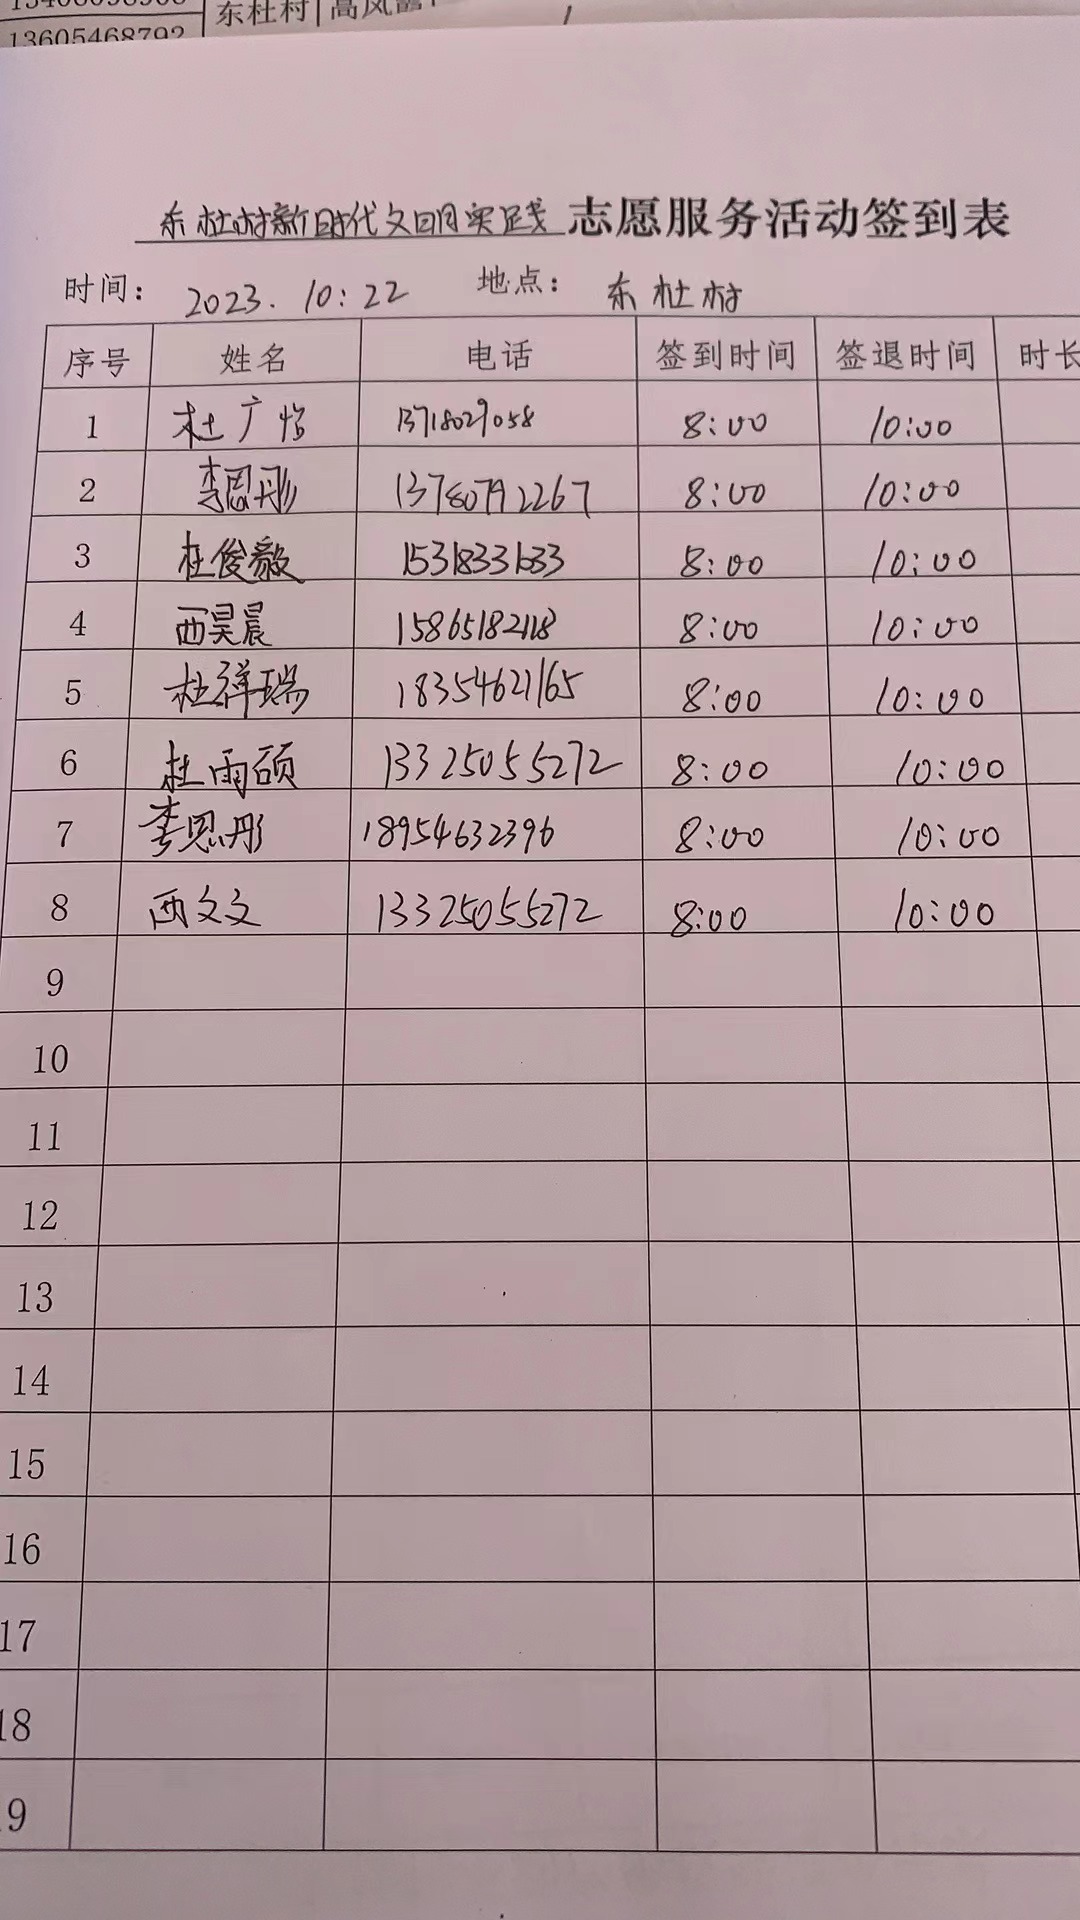 13605468792 东杜村 高凤
东杜村新时代文明实践 志愿服务活动签到表
时间: 2023. 10:22 地点: 东杜村
序号 姓名 电话 签到时间 签退时间 时长
1 杜广怡 13718029058 8:00 10:00
2 李恩彤 13780792267 8:00 10:00
3 杜俊毅 8:00 10:00
4 西昊晨 15865182118 8:00 10:00
5 杜祥瑞 18354621165 8:00 10:00
6 杜雨硕 13325055272 8:00 10:00
7 李恩彤 18954632396 8:00 10:00
8 西文文 13325055272 8:00 10:00
9
10
11
12
13
14
15
16
17
18
19